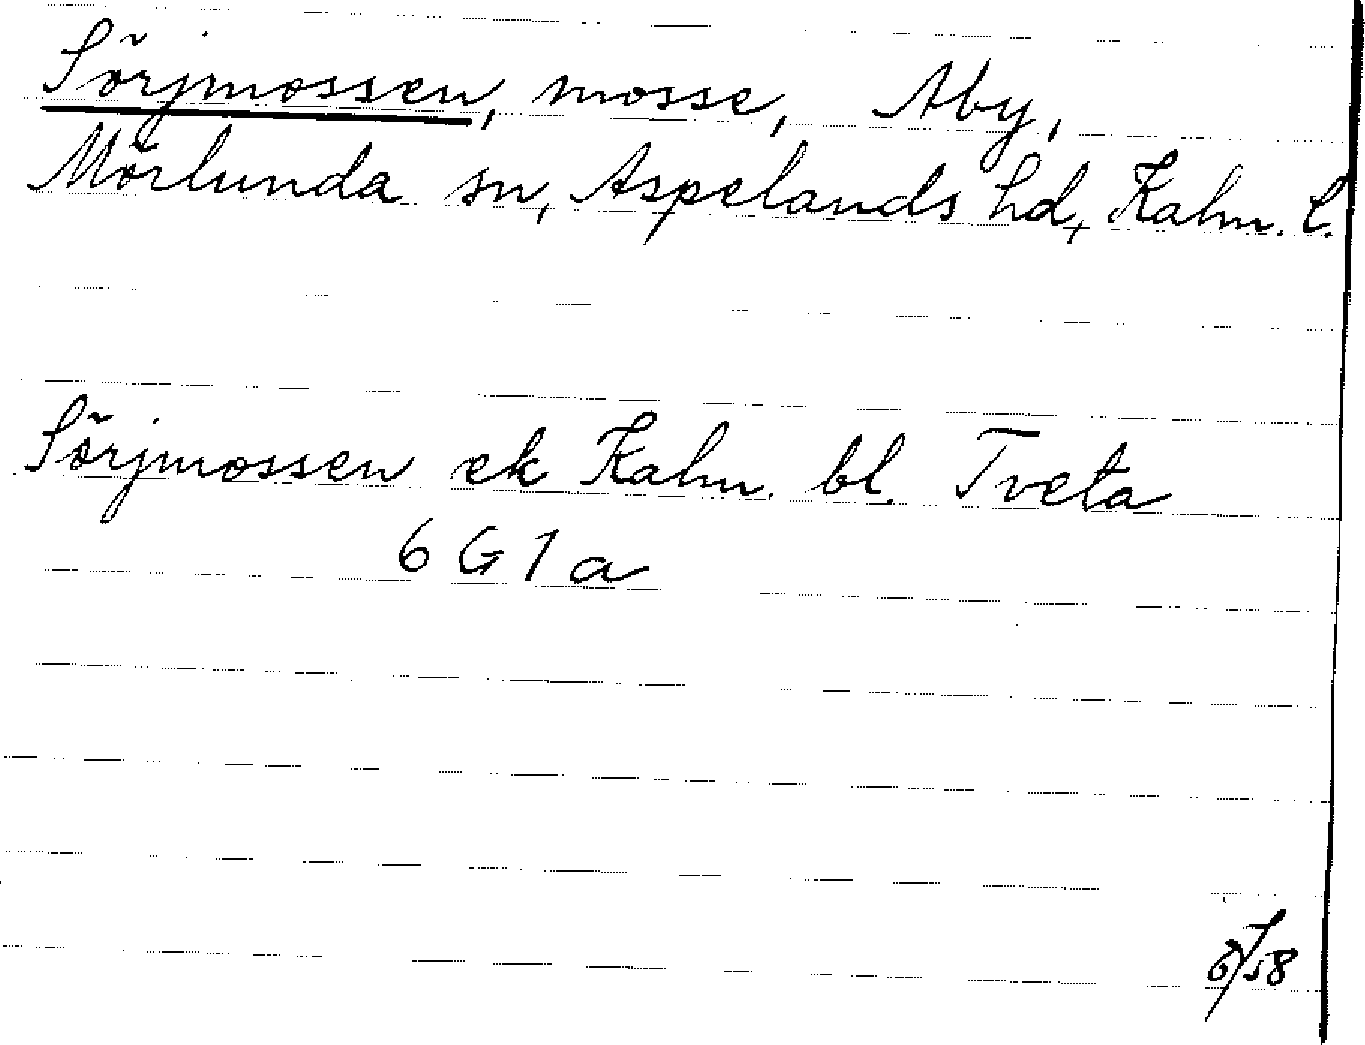 Sörjmossen, mosse, Åby,
Mörlunda sn, Aspelands hd, Kalm. l.
Sörjmossen ek Kalm. bl. Tveta
6 G 1 a